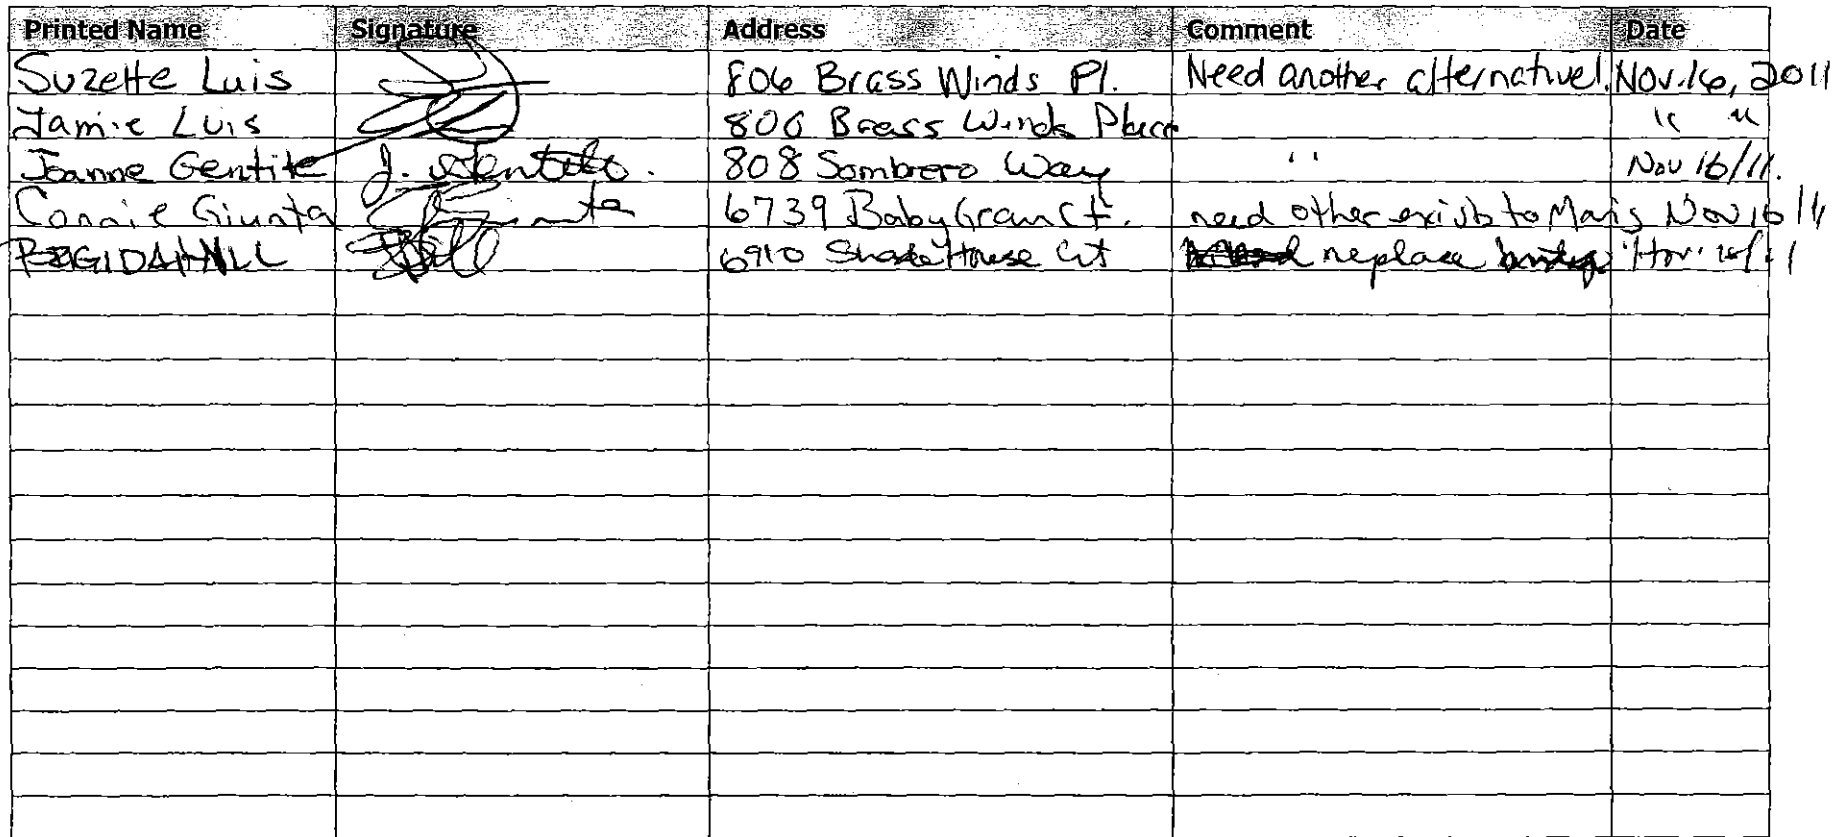 Printed Name Signature Address Comment Date
Suzette Luis 806 Brass Winds Pl. Need another alternative! Nov. 16, 2011
Jamie Luis 806 Brass Winds Place " "
Joanne Gentile J. Gentile. 808 Sombrero Way " Nov 16/11.
Connie Giunta 6739 Baby Gran Ct. need other to Nov 16/11
6910 Ct replace